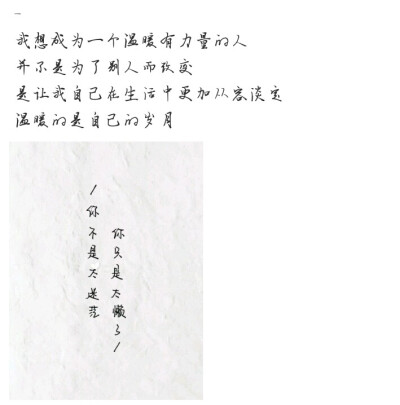 我想成为一个温暖有力量的人
并不是为了别人而改变
是让我自己在生活中更加从容淡定
温暖的是自己的岁月
/你不是太迷茫
你只是太懒了/